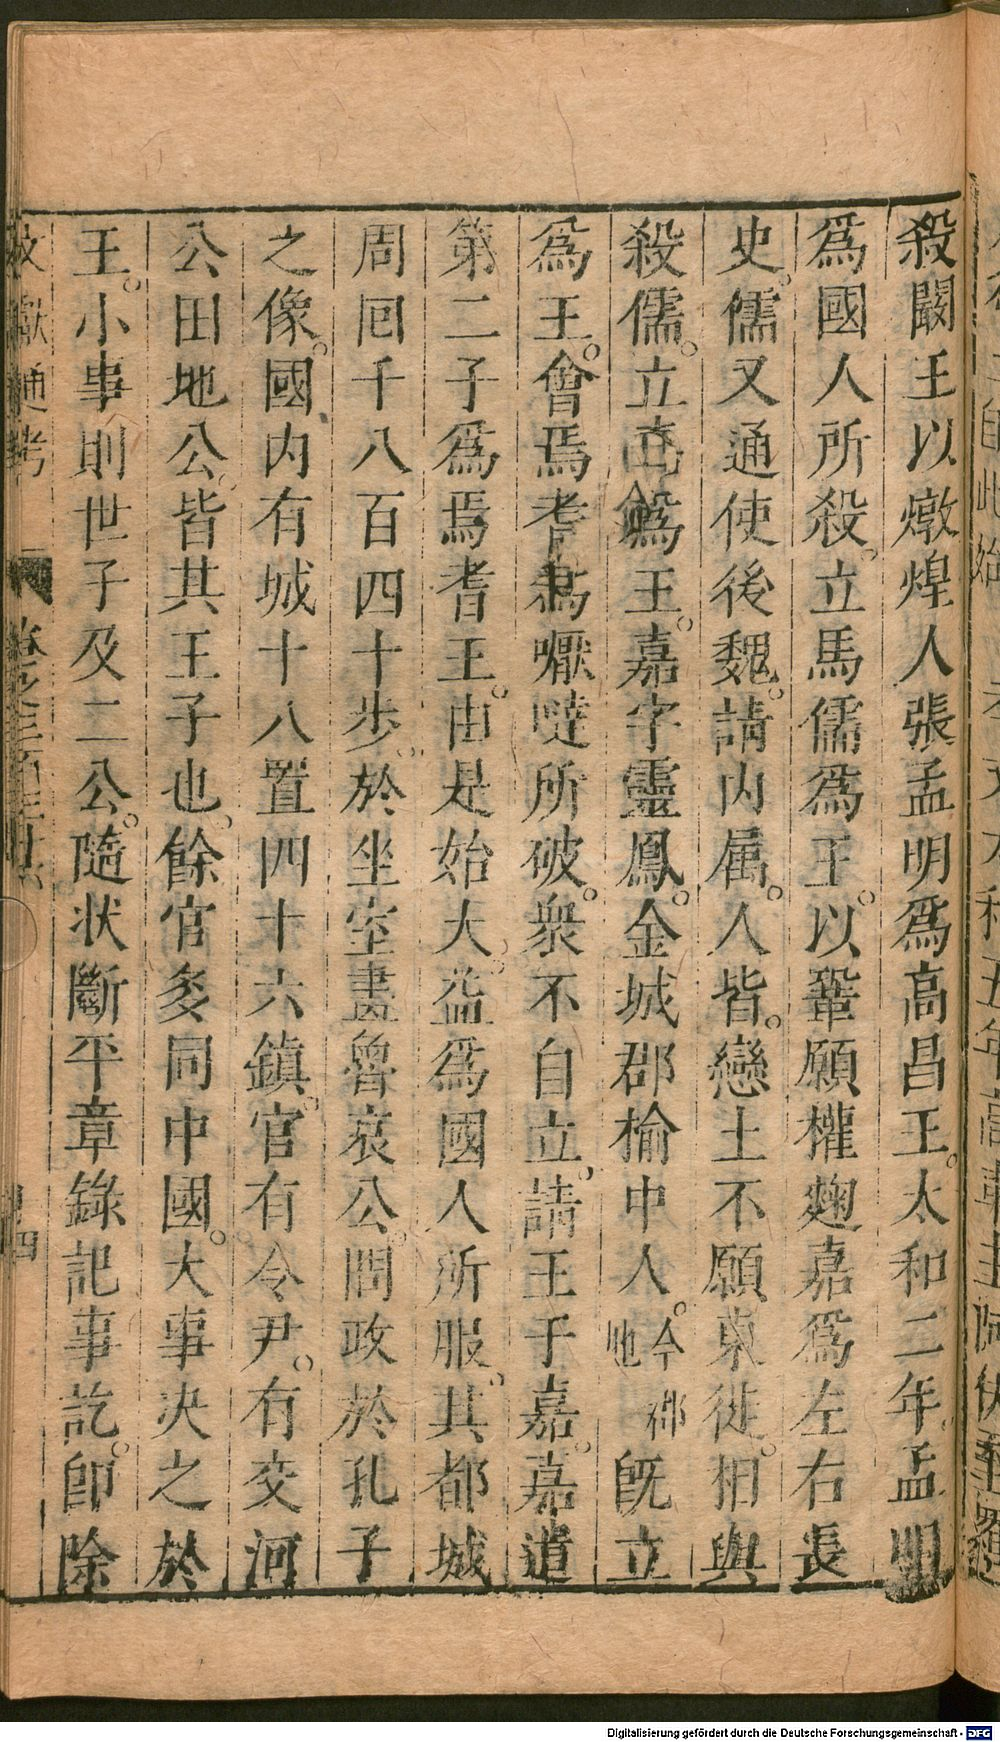 殺闞王以燉煌人張孟明爲高昌王太和二年孟明
爲國人所殺立馬儒爲王以鞏顧權麴嘉爲左右長
史儒又通使後魏請内属人皆戀土不願東徙相與
殺儒立嘉爲王嘉字靈鳳金城郡榆中人今郡地旣立
爲王會焉耆爲嚈噠所破衆不自立請王于嘉嘉遣
第二子爲焉耆王由是始大益爲國人所服其都城
周囘千八百四十步於坐室畫魯哀公問政於孔子
之像國内有城十八置四十六鎮官有令尹有交河
公田地公皆其王子也餘官多同中國大事决之於
王小事則世子及二公隨状斷平章錄記事訖卽除
文獻通考 卷之三百三十六
Digitalisierung gefördert durch die Deutsche Forschungsgemeinschaft - DFG